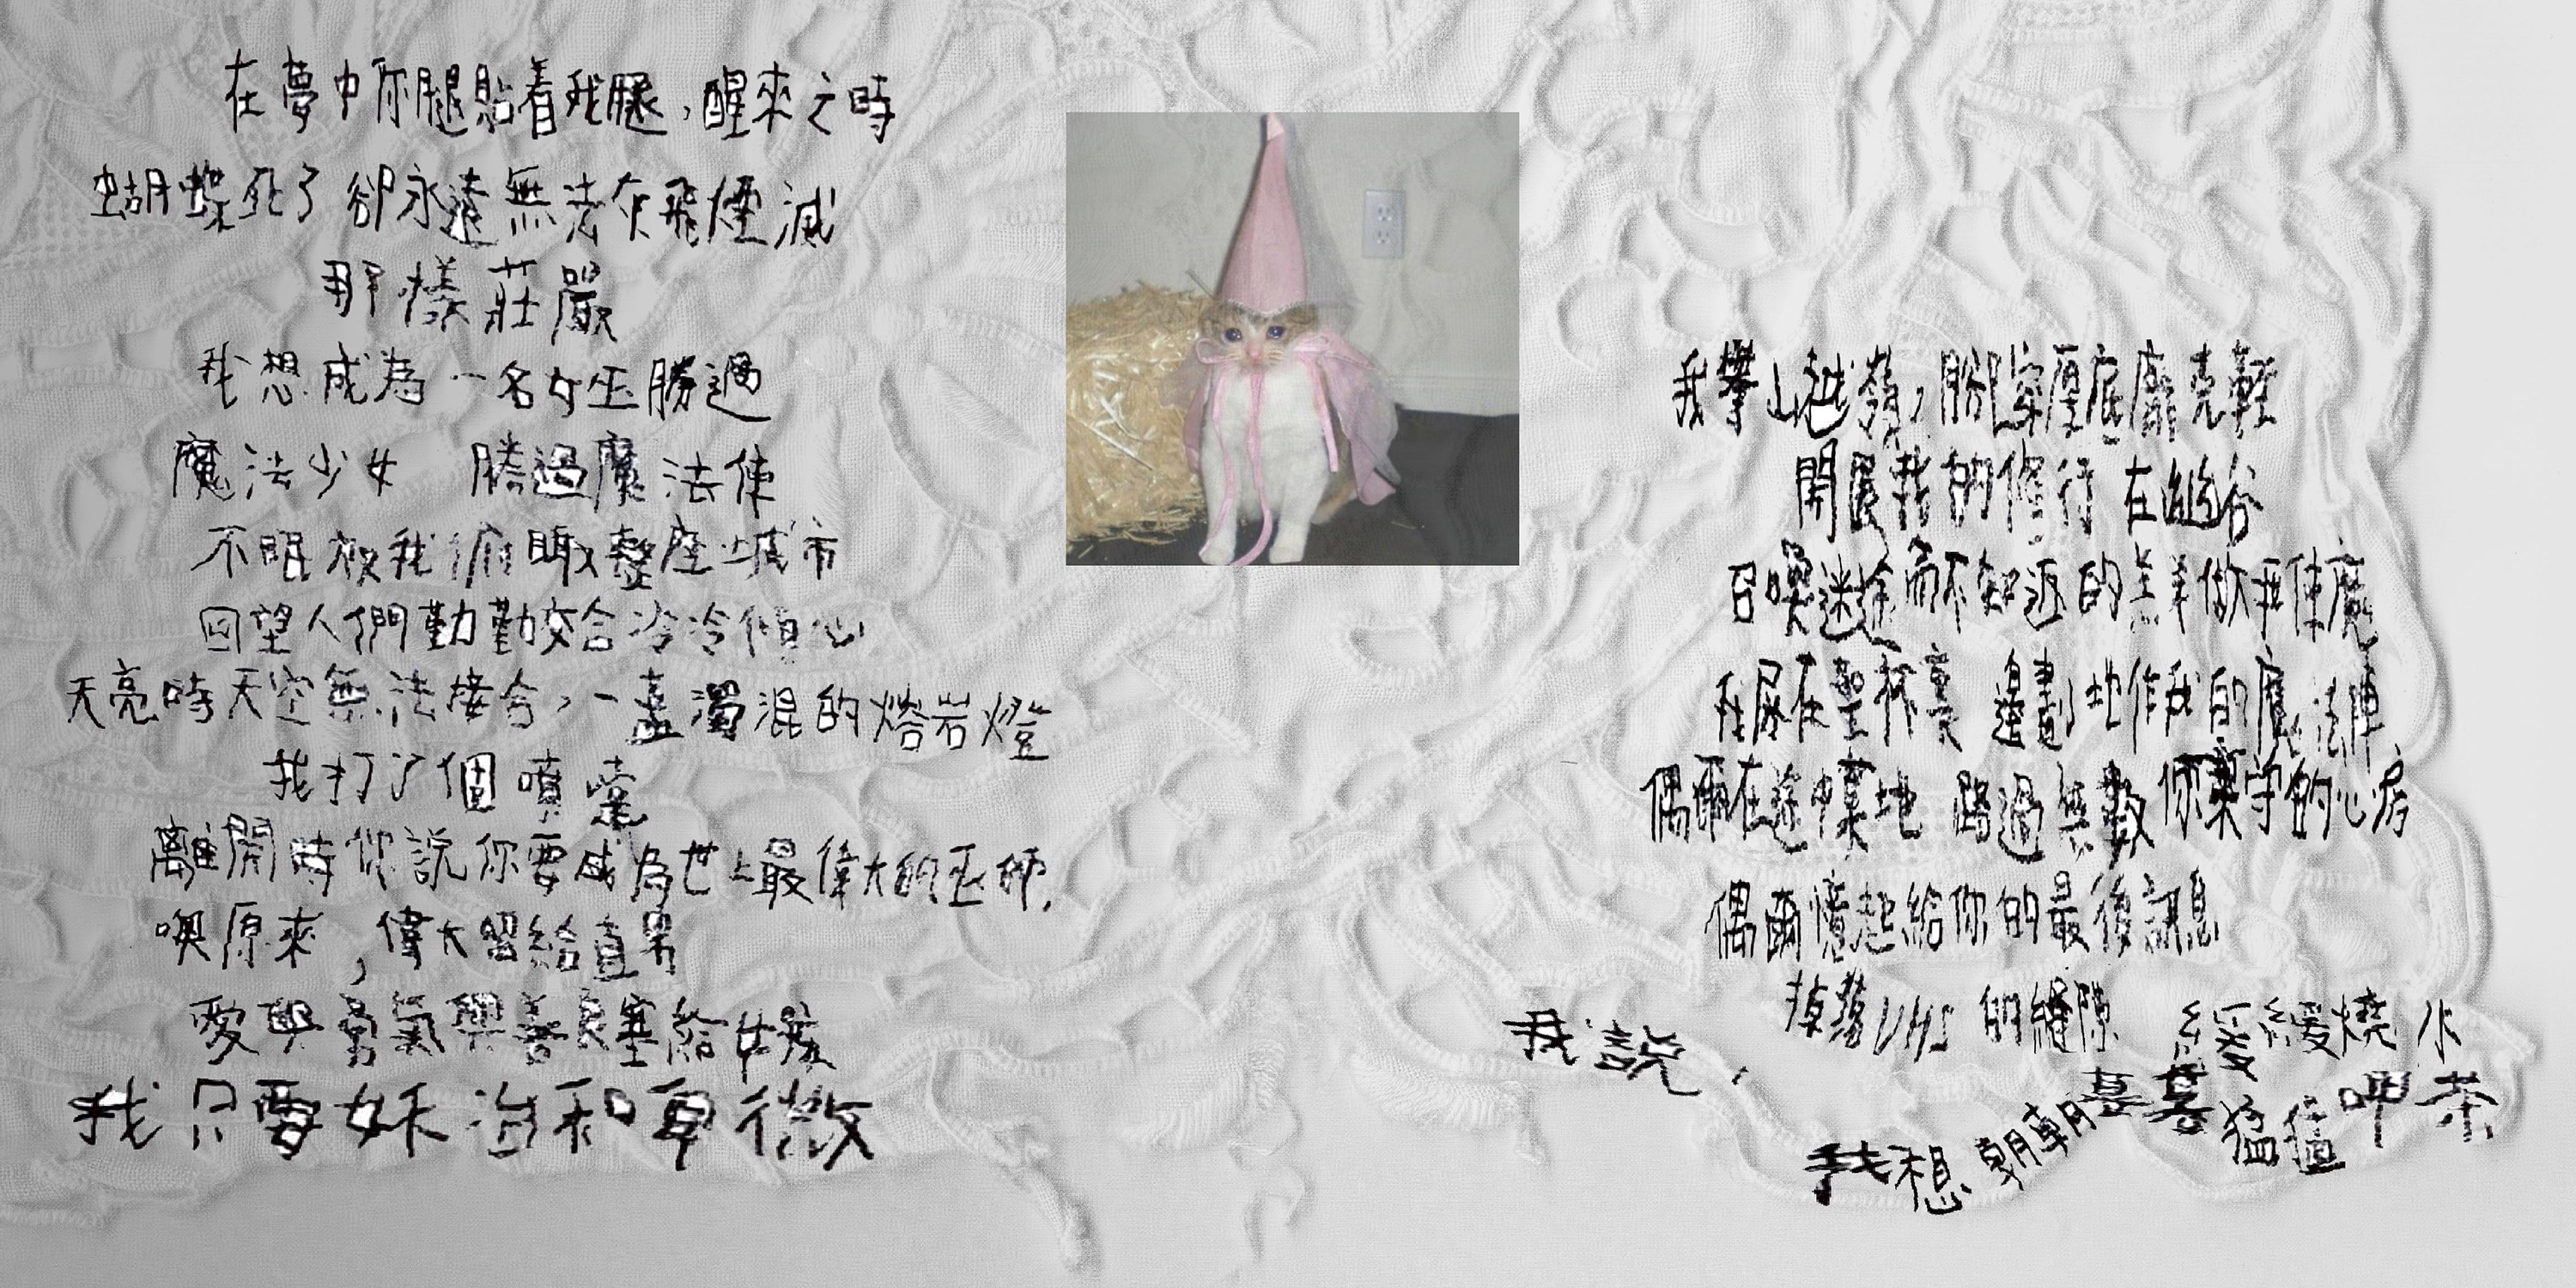 在夢中你腿貼着我腿，醒來之時
蝴蝶死了 卻永遠無法灰飛煙滅
那樣莊嚴
我想成為一名女巫勝過
魔法少女 勝過魔法使
不眠夜我俯瞰整座城市
回望人們勤勤交合冷冷傾心
天亮時天空無法接合，一盞濁混的熔岩燈
我打了個噴嚏
離開時你說你要成為世上最偉大的巫師，
噢原來，偉大留給直男
愛與勇氣與善良塞給女孩
我只要妖冶和卑微
我攀山越嶺，腳踩厚底靡克輕
開展我的修行 在幽谷
召喚迷途而不知返的羔羊做我使魔
我尿在聖杯裏 邊劃地作我的魔法陣
偶爾在途中某地 路過無數你棄守的心房
偶爾憶起給你的最後訊息
掉落VHS的縫隙
我說，
緩緩燒水
我想 朝朝暮暮猛猛呷茶